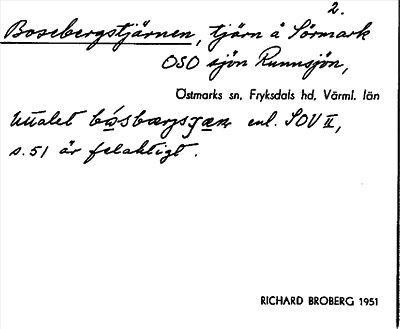 2.
Bosebergstjärnen, tjärn å Sörmark
OSO sjön Runnsjön,
Östmarks sn, Fryksdals hd, Värml. län
Uttalet enl. SOV II,
s. 51 är felaktigt.
RICHARD BROBERG 1951